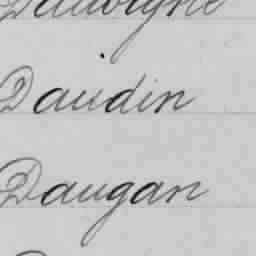 Daudin
Daugan